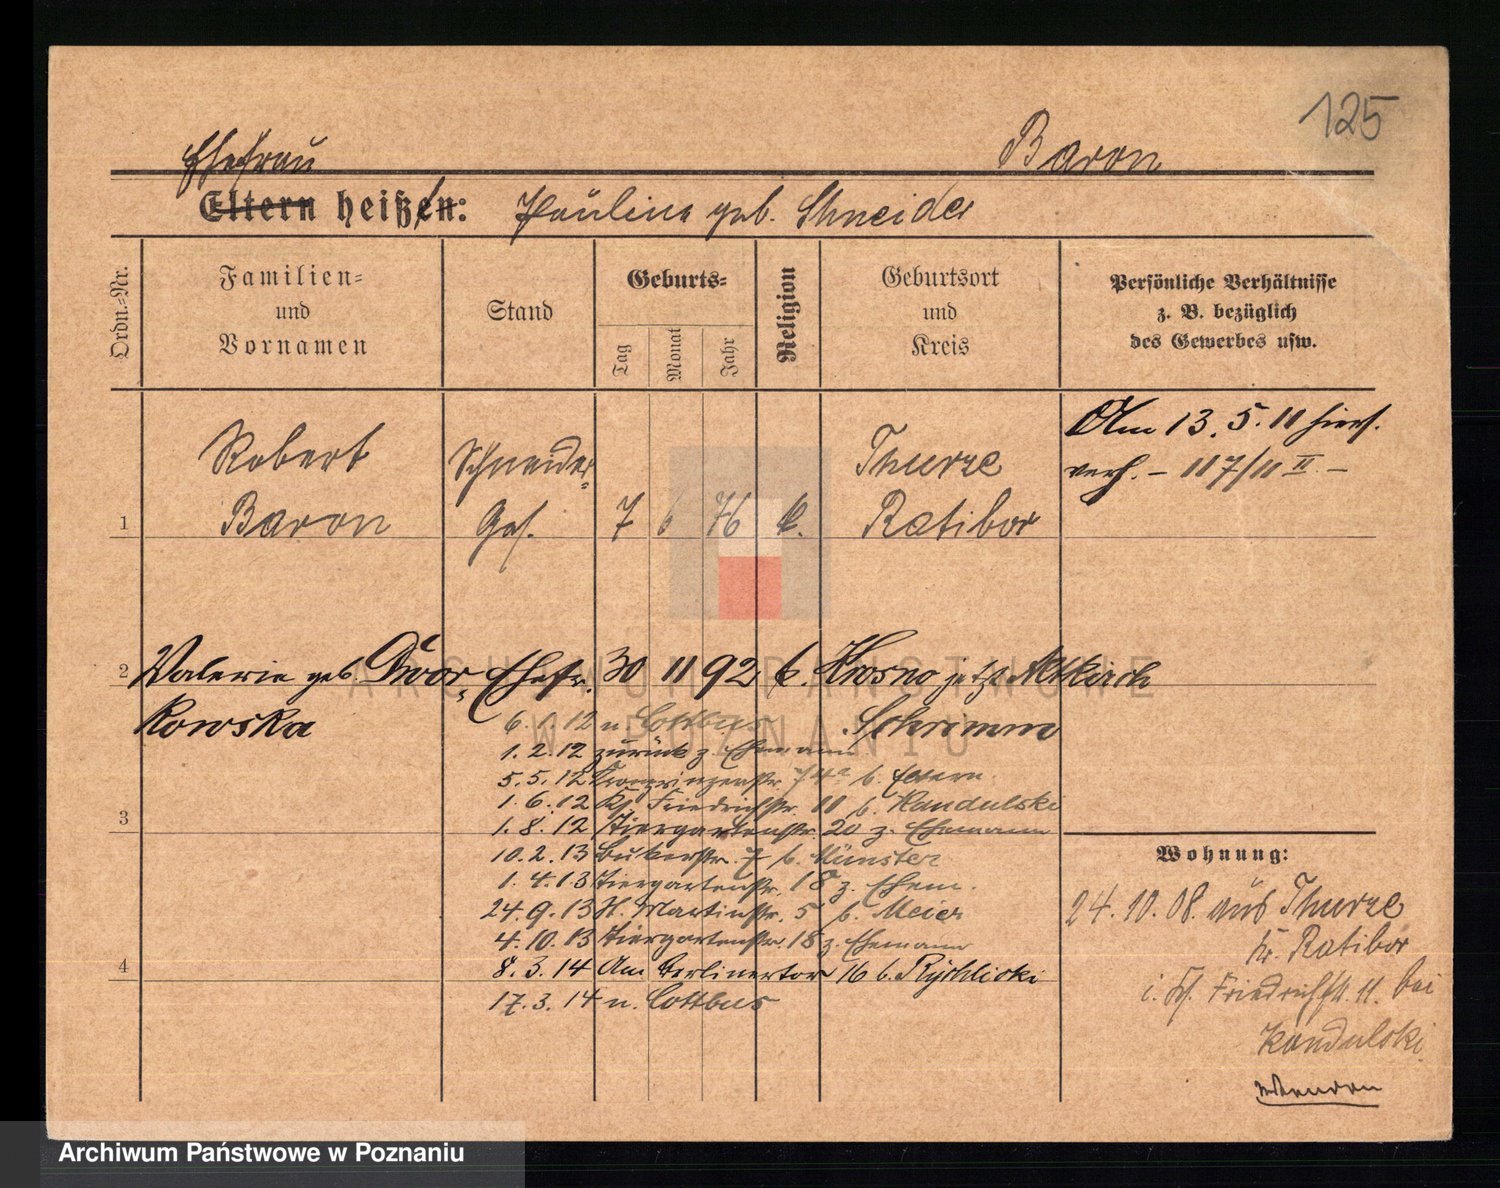 125
Ehefrau
Baron
Eltern heißen: Pauline geb. Schneider
Ordn.=Nr.
Familien=
und
Vornamen
Stand
Geburts=
Tag
Monat
Jahr
Religion
Geburtsort
und
Kreis
Persönliche Verhältnisse
z. B. bezüglich
des Gewerbes usw.
Am 13.5.11 hiers.
verh. – 117/11 II. –
Robert Schneider= Thurze
1 Baron Ges. 7 6 76 k. Ratibor
2 Valerie geb. Dwor= Ehefr. 30 11 92 k. Krosno jetzt Altkirch
kowska Schrimm
6.1.12 n. Cottbus
1.2.12 zurück z. Ehemann
5.5.12 Kronprinzenstr. 74a b. Eltern.
1.6.12 Kl. Friedrichstr. 11 b. Kandulski
3
1.8.12 Tiergartenstr. 20 z. Ehemann
10.2.13 Bukerstr. 7 b. Münster
1.4.13 Tiergartenstr. 18 z. Ehem.
24.9.13 St. Martinstr. 5 b. Meier
4.10.13 Tiergartenstr. 18 z. Ehemann
4
8.3.14 Am Berlinertor 16 b. Rychlicki
17.3.14 n. Cottbus
Wohnung:
24.10.08. aus Thurze
Kr. Ratibor
Friedrichstr. 11. bei
Kandulski
ARCHIWUM PAŃSTWOWE
W POZNANIU
Archiwum Państwowe w Poznaniu